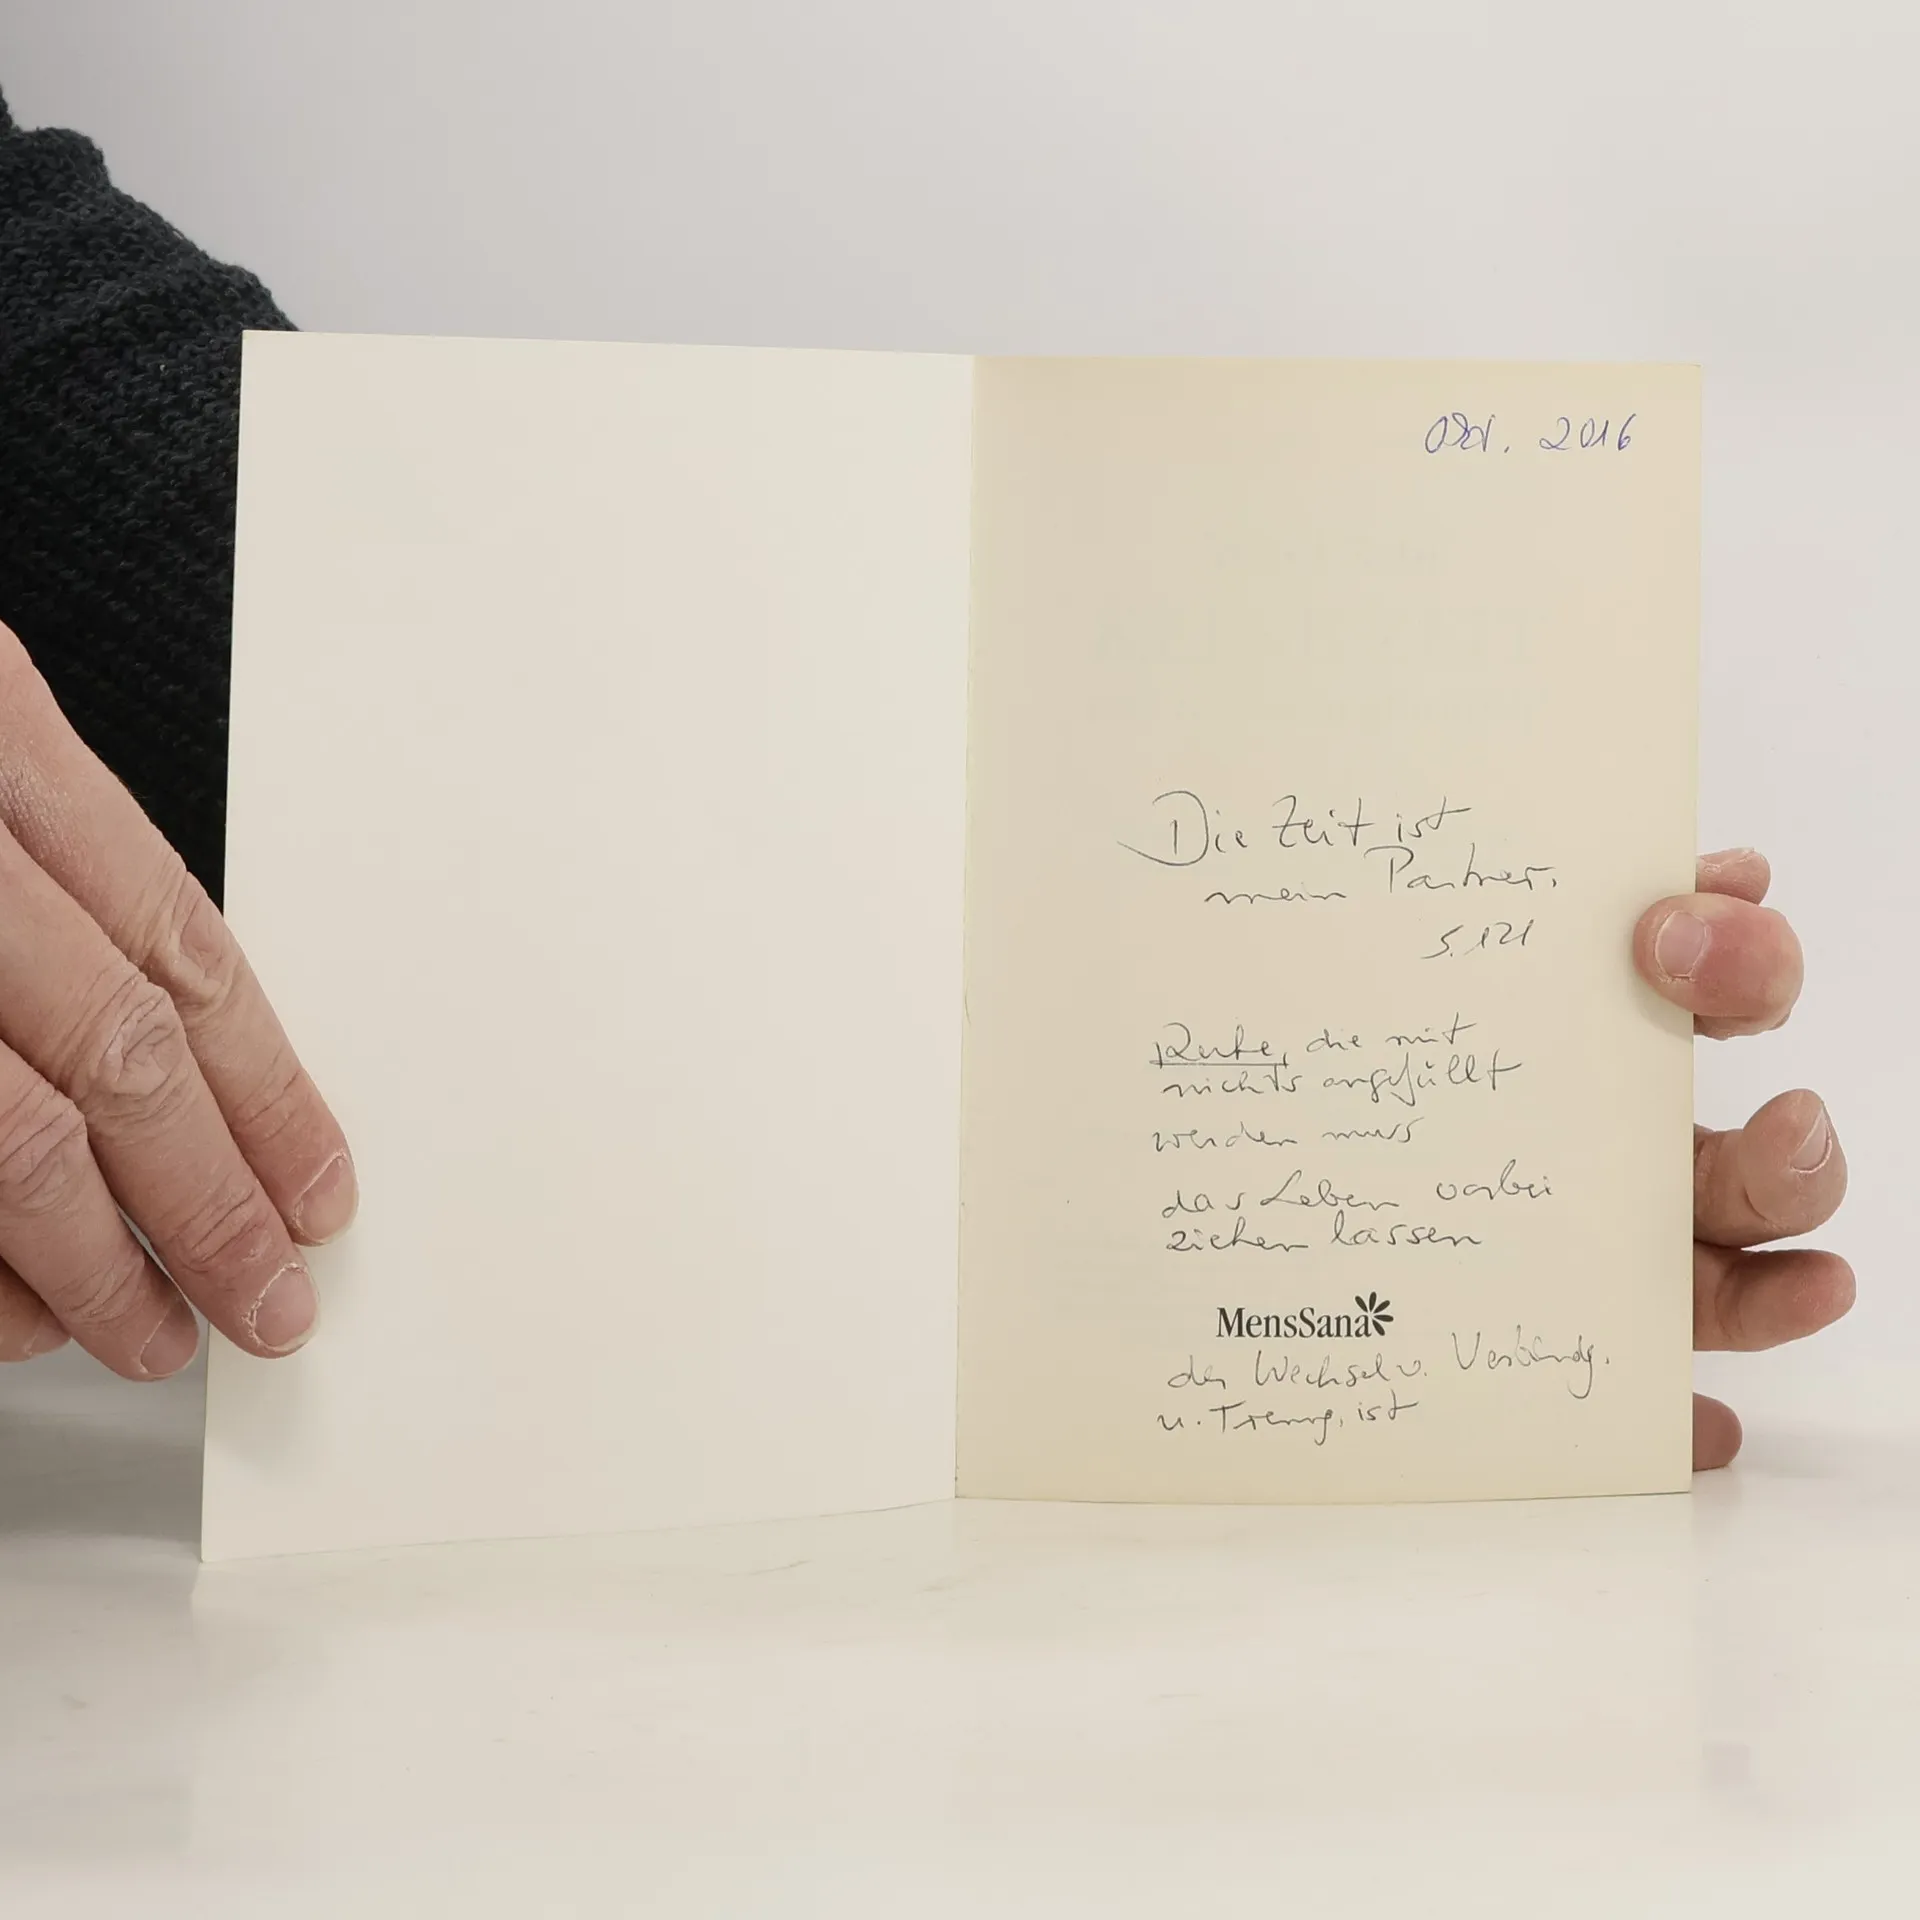 Okt. 2016
Die Zeit ist
mein Partner.
S. 121
Ruhe, die mit
nichts angefüllt
werden muss
das Leben vorbei
ziehen lassen
MensSana
der Wechsel v. Verbindg.
u. Trenng. ist